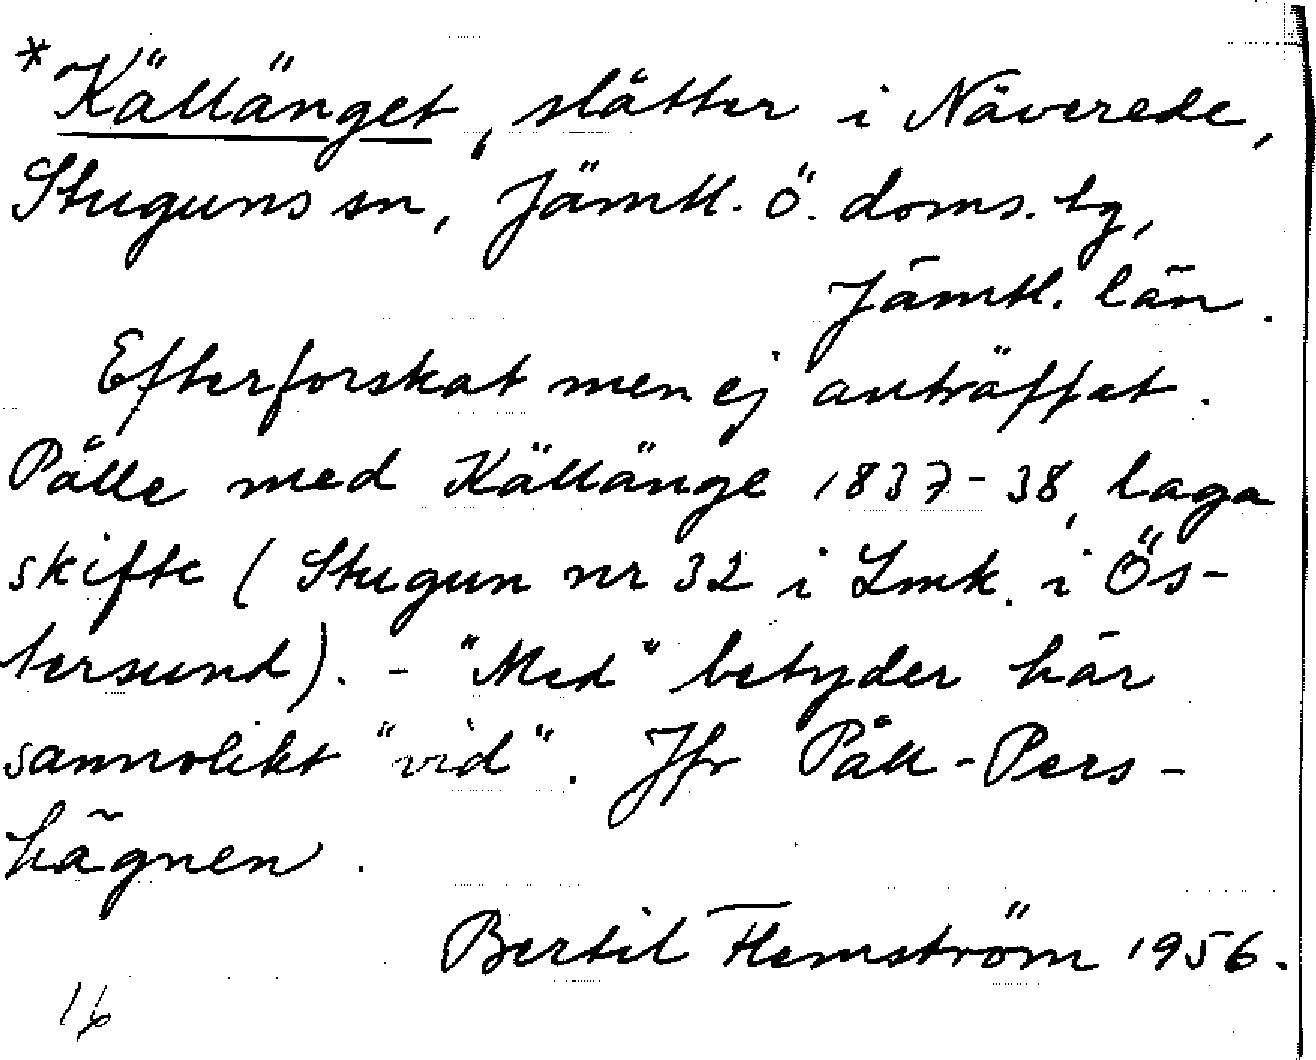 *Källänget, slåtter i Näverede,
Stuguns sn, Jämtl. ö. doms. lg,
Jämtl. län.
Efterforskat men ej anträffat.
Pålle med Källänge 1837-38, laga
skifte (Stugun nr 32 i Lmk. i Ös-
tersund). - "Med" betyder här
sannolikt "vid". Jfr Påll-Pers-
hägnen.
Bertil Flemström 1956.
16